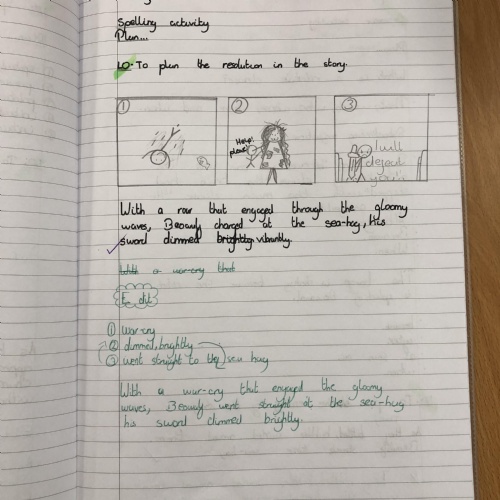 Spelling activity
Plan...
LO: To plan the resolution in the story.
1 2 3
Help! please!
I will
defeat
you!
With a roar that engaged through the gloomy
waves, Beowulf charged at the sea-hag, his
sword dimmed brightly vibrantly.
With a war-cry that
Edit
1 war-cry
2 dimmed, brightly
3 went straight to the sea hag
With a war-cry that engaged the gloomy
waves, Beowulf went straight at the sea-hag
his sword dimmed brightly.